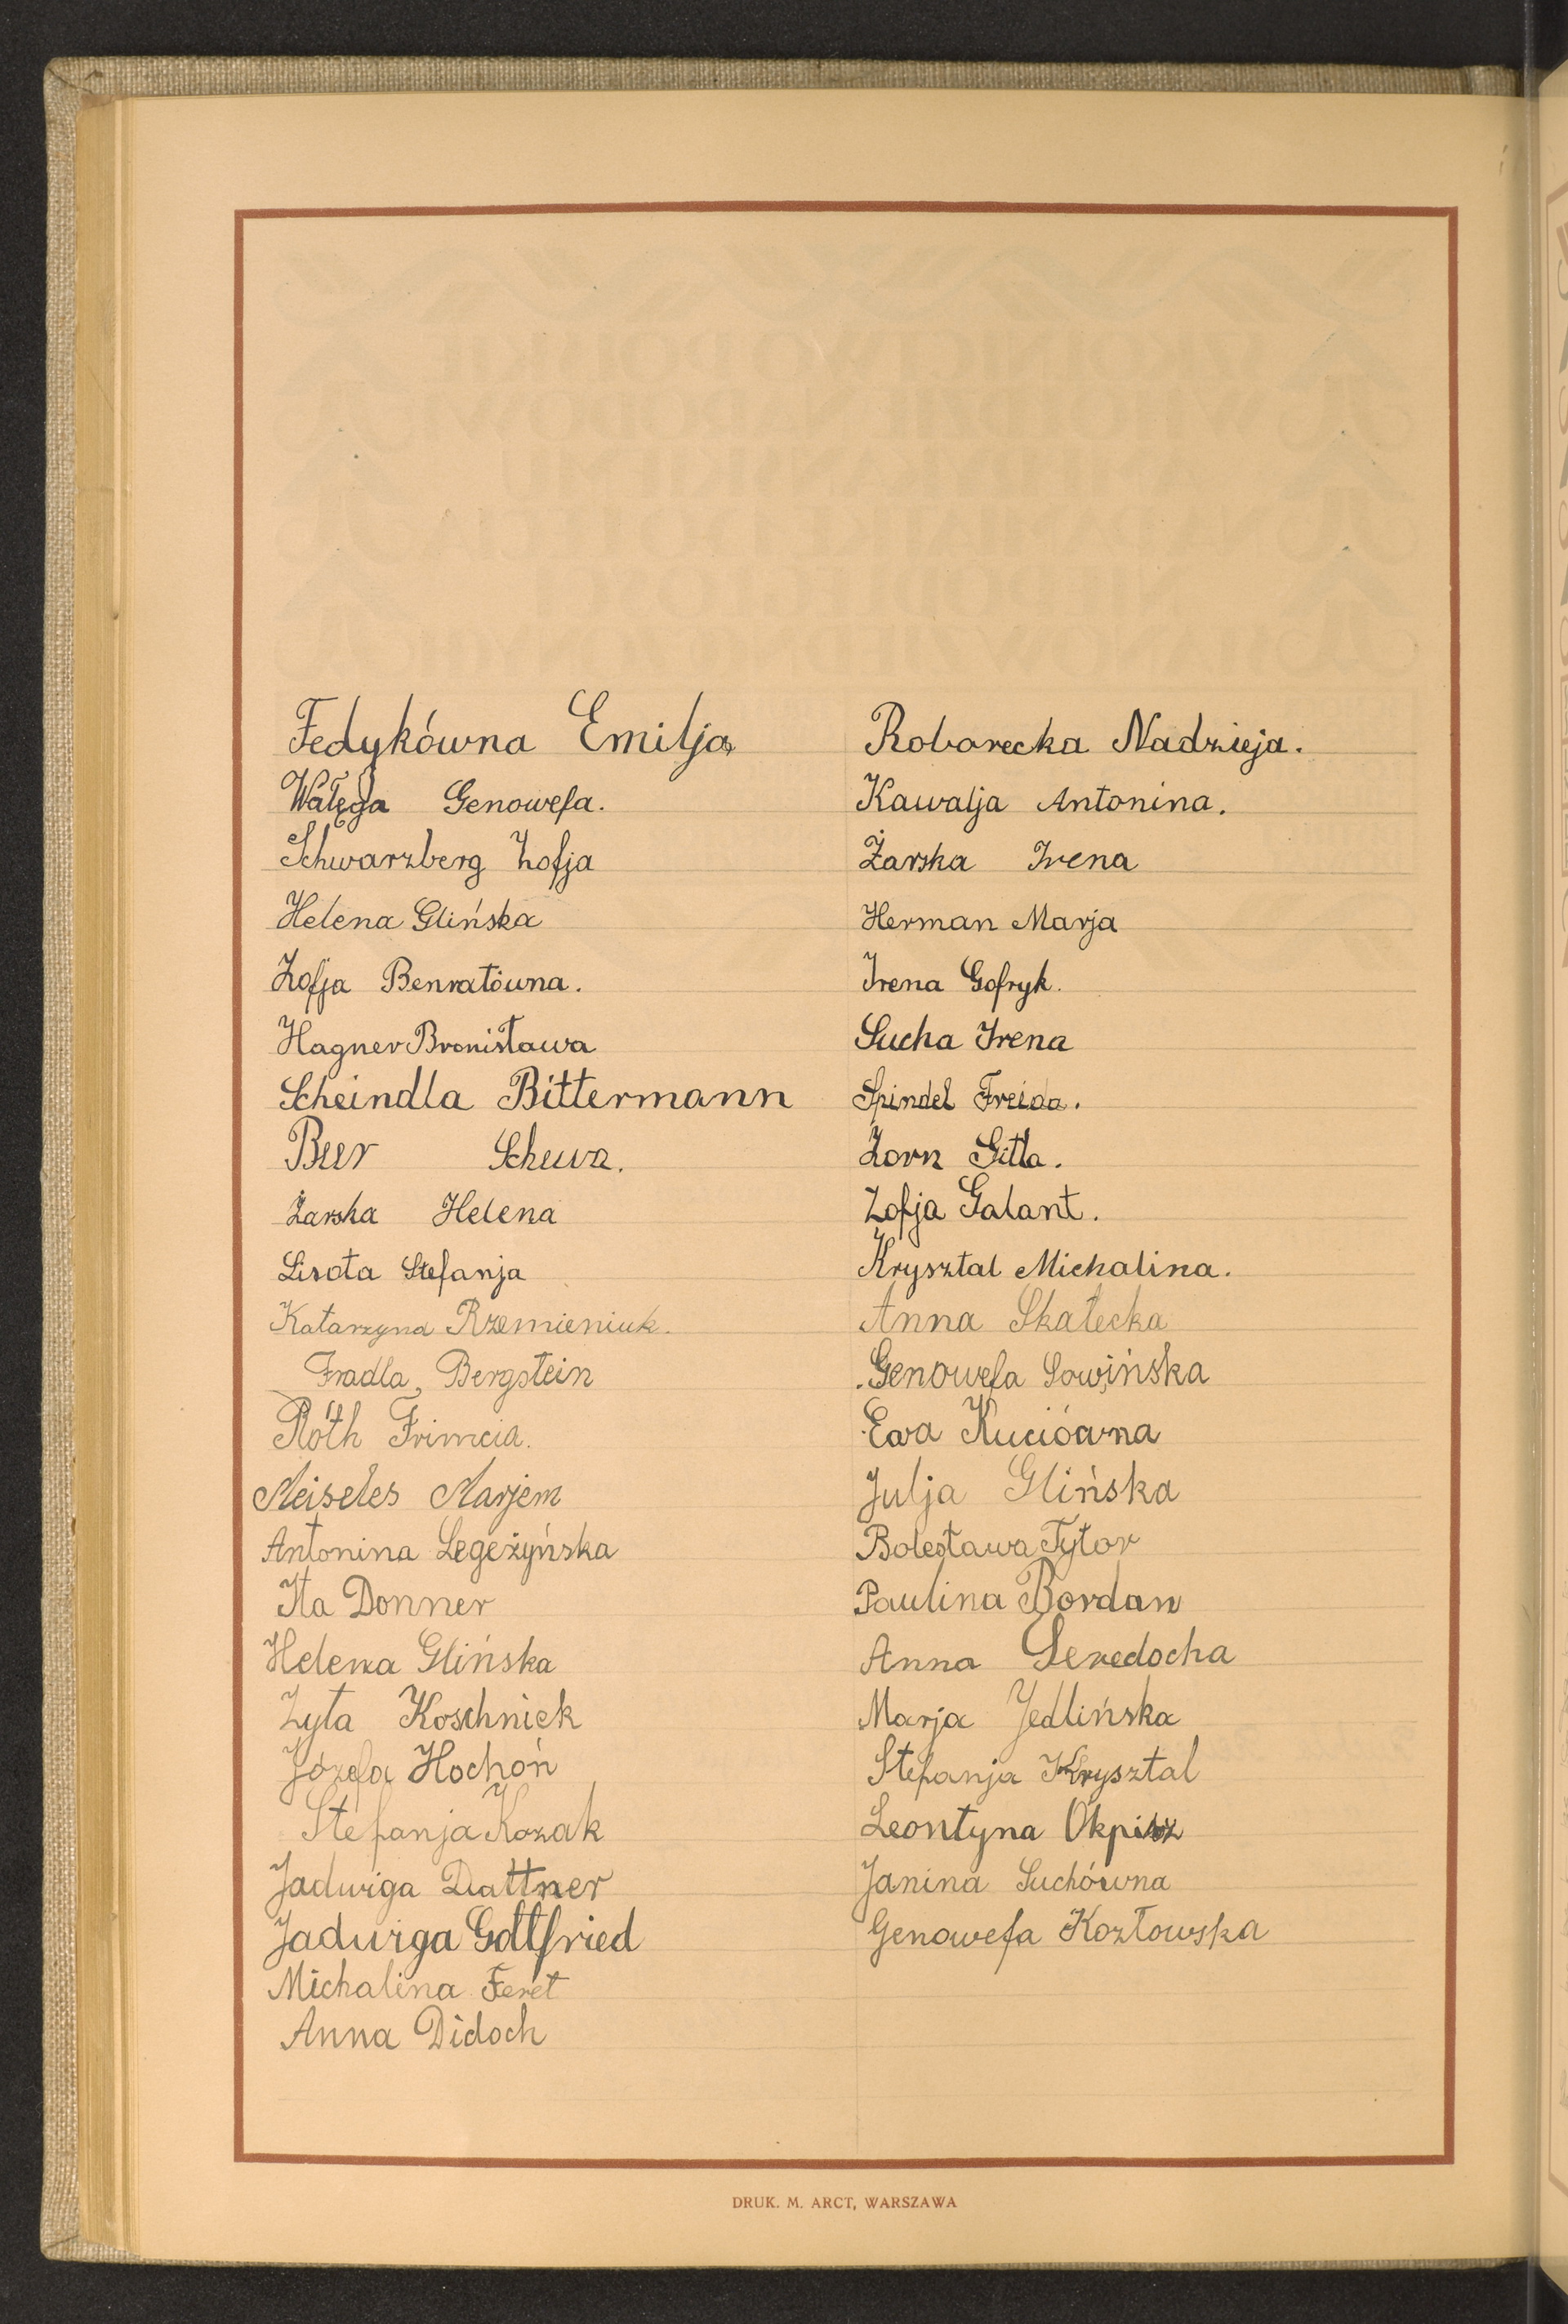 Fedykówna Emilja
Wałęga Genowefa.
Schwarzberg Zofja
Helena Glińska
Zofja Benratówna.
Hagner Bronisława
Scheindla Bittermann
Beer Schewa.
Żarska Helena
Lisota Stefanja
Katarzyna Rzemieniuk.
Fradla Bergstein
Róth Frimcia.
Meiseles Marjem
Antonina Legeżyńska
Ita Donner
Helena Glińska
Zyta Koschnick
Józefa Hochoń
Stefanja Kozak
Jadwiga Dattner
Jadwiga Gottfried
Michalina Feret
Anna Didoch
Roborecka Nadzieja.
Kawalja Antonina.
Żarska Irena
Herman Marja
Irena Gofryk.
Sucha Irena
Spindel Freida.
Zorn Gitla.
Zofja Galant.
Krysztal Michalina.
Anna Skałecka
Genowefa Sowińska
Ewa Kuciówna
Julja Glińska
Bolesława Tytor
Paulina Bordan
Anna Seredocha
Marja Jedlińska
Stefanja Krysztal
Leontyna Okpisz
Janina Suchówna
Genowefa Kozłowska
DRUK. M. ARCT, WARSZAWA